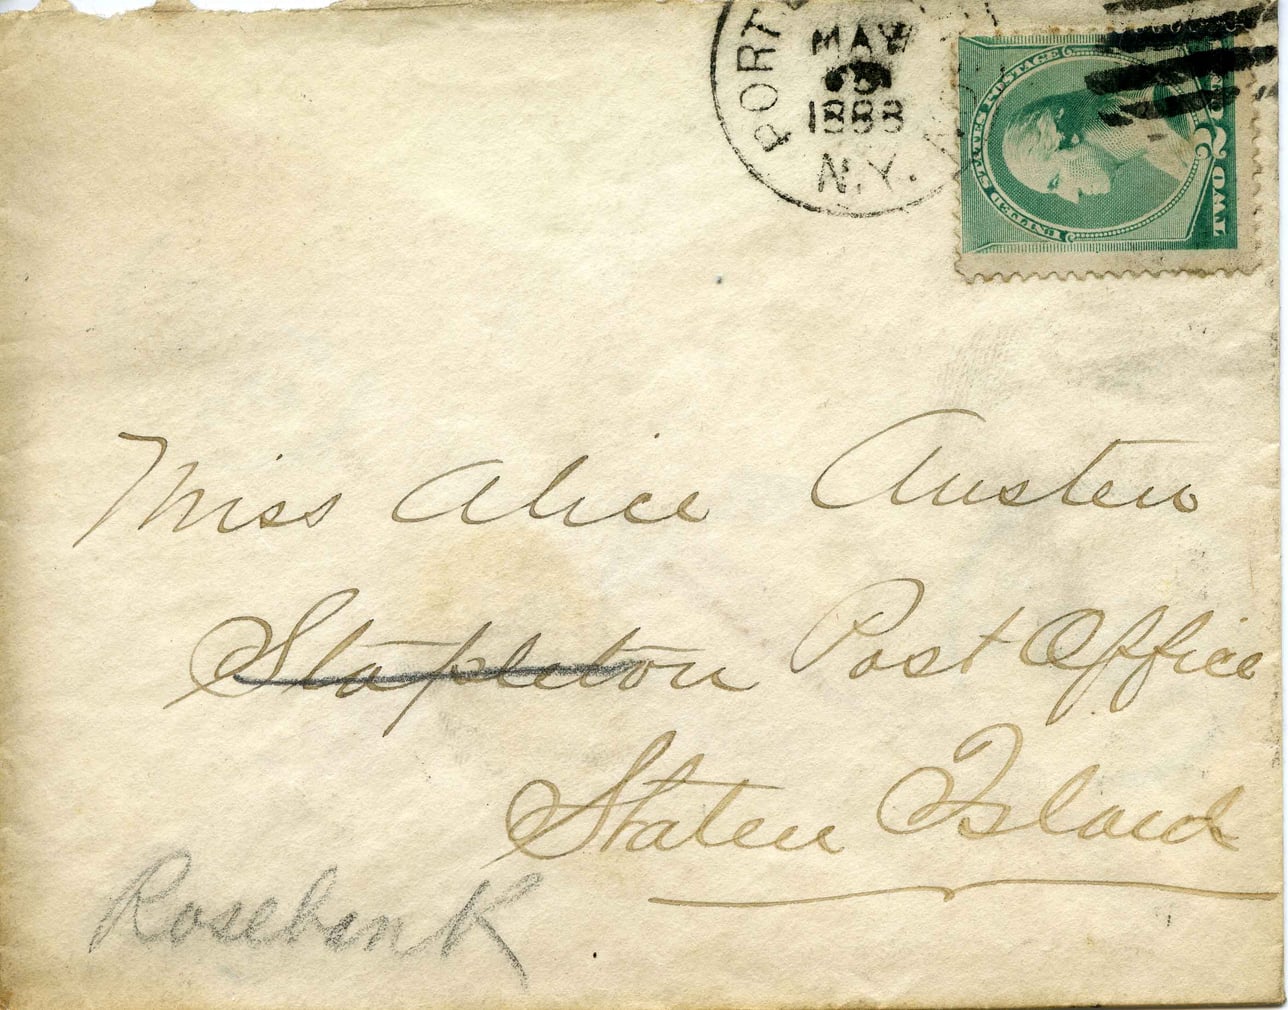 MAY
1888
N.Y.
UNITED STATES POSTAGE
TWO
2
Miss Alice Austen
Stapleton Post Office
Staten Island
Rosebank